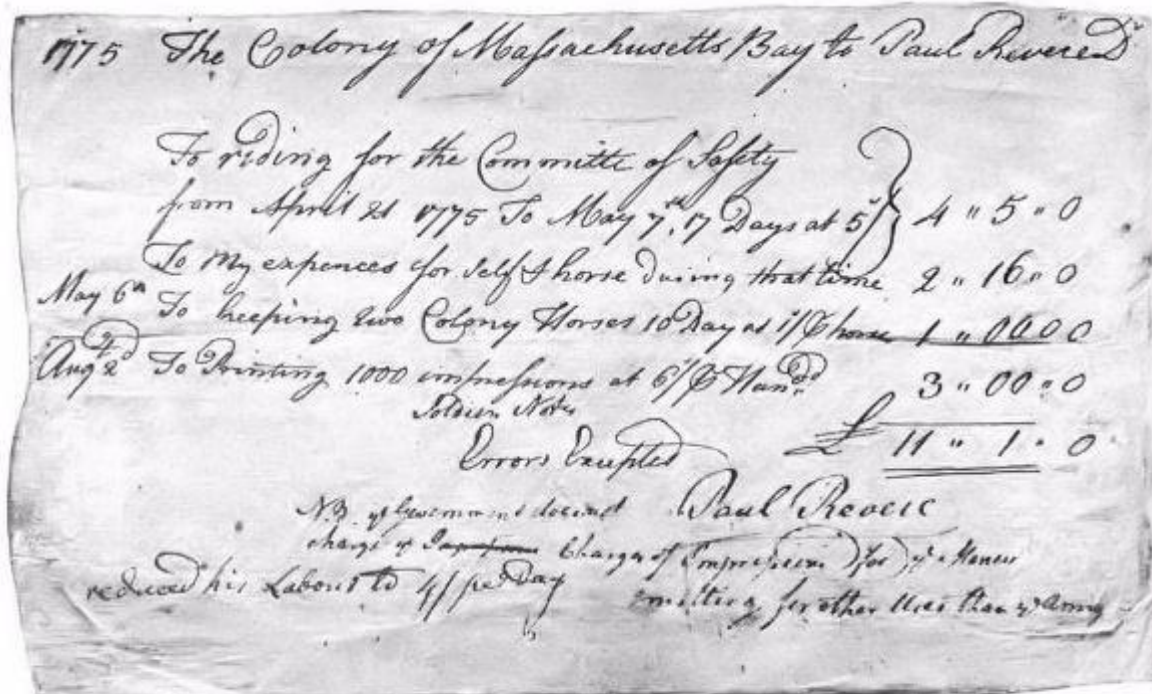 1775 The Colony of Massachusetts Bay to Paul Revere Dr
To riding for the Committe of Safity
from April 21 1775 To May 7th, 17 Days at 5/ 4 " 5 " 0
To my expences for self & horse during that time 2 " 16 " 0
May 6th To keeping two Colony Horses 10 Day at 1/ ₱ horse 1 " 00 0 0
Augt 2d To Printing 1000 impressions at 6/ ₱ Hundd 3 " 00 " 0
Soldiers Notes
Errors Excepted £ 11 " 1 " 0
Paul Revere
N.B. ye Government does not
charge ye Charges of Impressions for ye Monies
reduced his Labour to 4/ per Day
Emitting for other Uses than ye Army